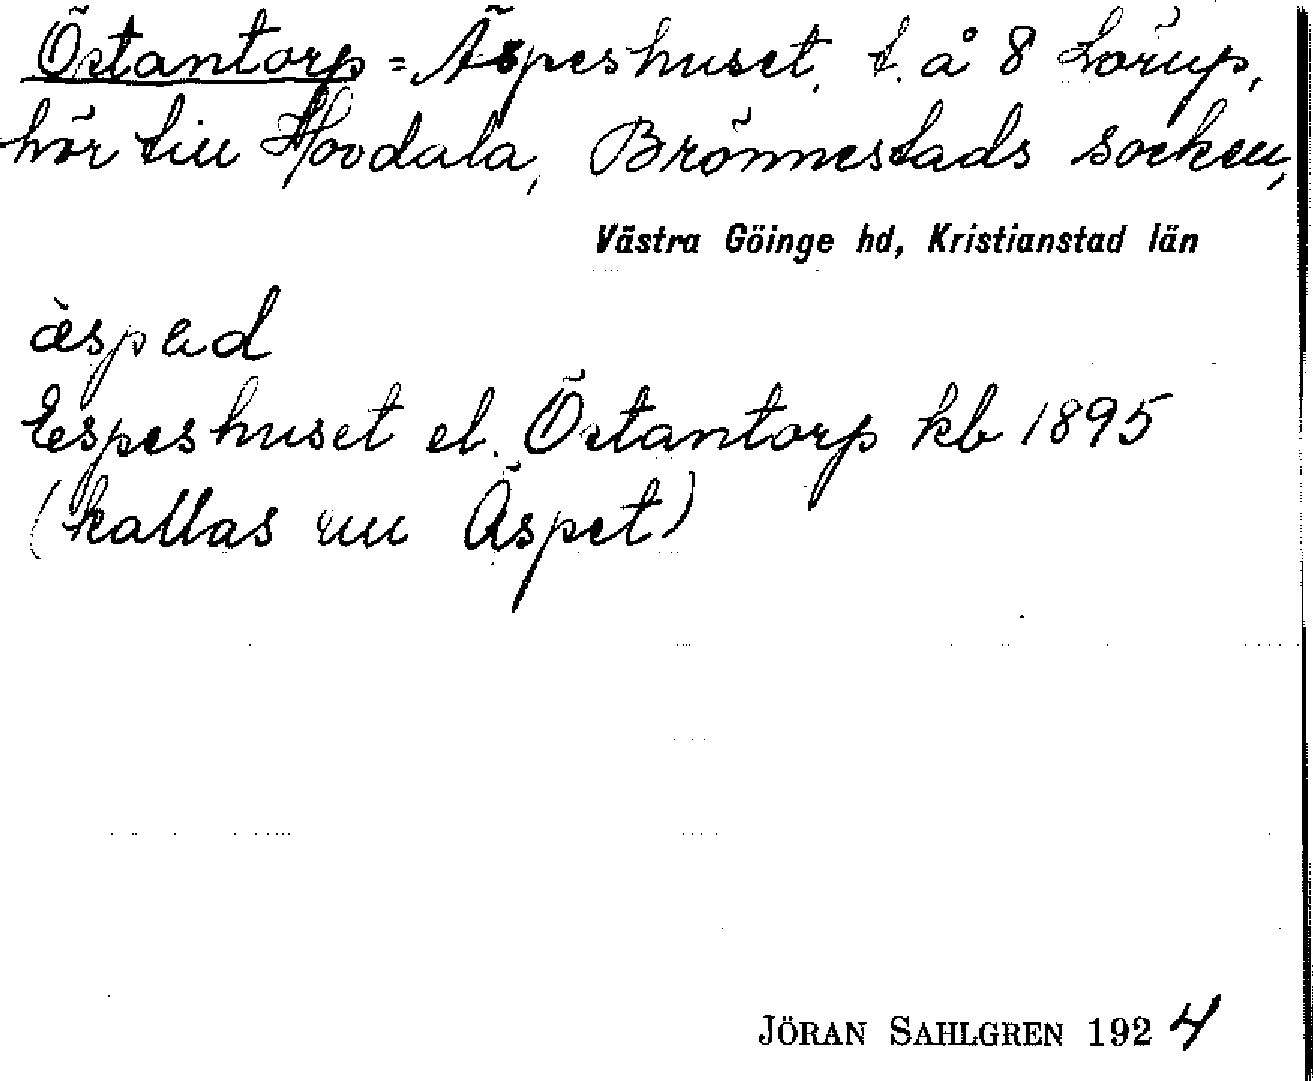 Östantorp = Äspeshuset, t. å 8 Lörup,
hör till Hovdala, Brönnestads socken,
Västra Göinge hd, Kristianstad län
äspad
Espeshuset el. Östantorp kb 1895
(kallas nu Äspet)
JÖRAN SAHLGREN 1924